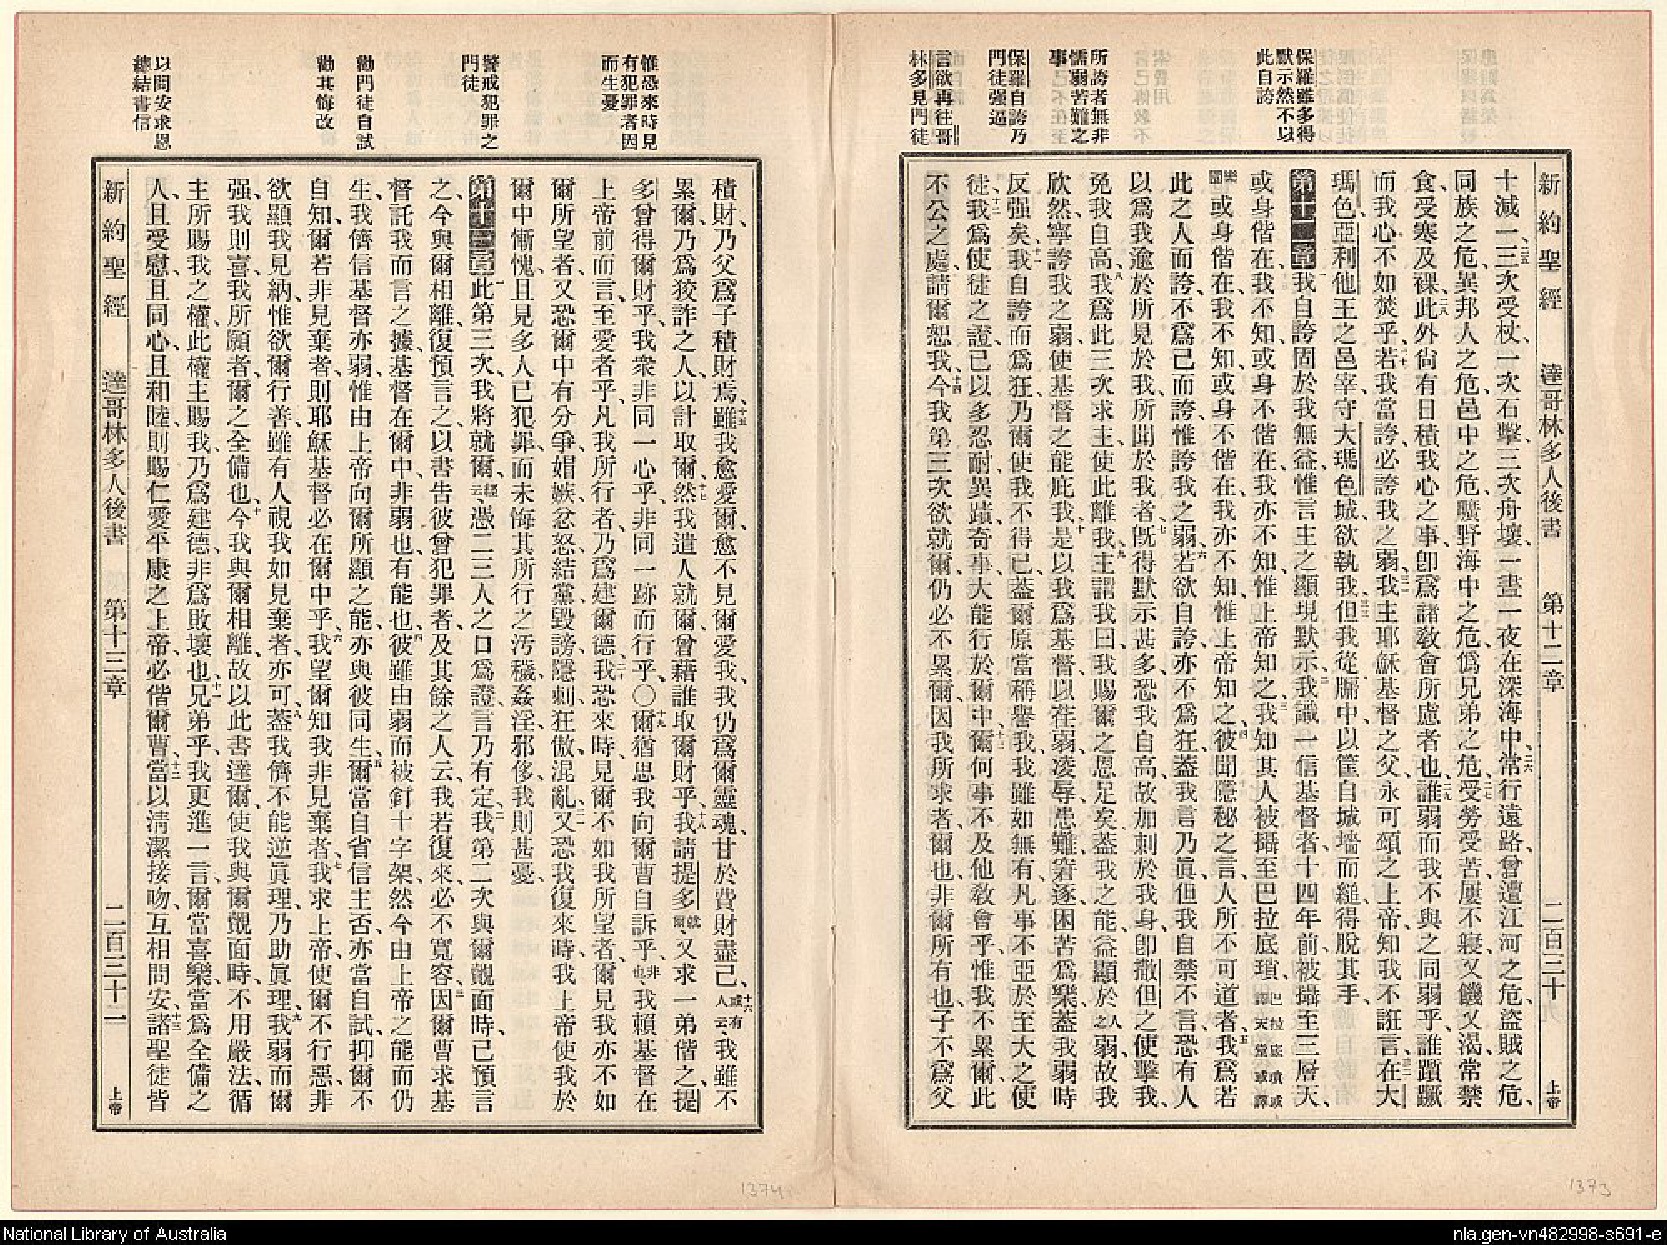 保羅雖多得
默示然不以
此自誇
所誇者無非
懦弱苦難之
事
保羅自誇乃
門徒强逼
言欲再往哥
林多見門徒
新約聖經 達哥林多人後書 第十二章 二百三十 上帝
十減一、三次受杖、一次石擊、三次舟壞、一晝一夜在深海中、常行遠路、曾遭江河之危、盜賊之危、
同族之危、異邦人之危、邑中之危、曠野海中之危、僞兄弟之危、受勞受苦、屢不寢、又饑又渴、常禁
食、受寒及裸、此外尙有日積我心之事、卽爲諸敎會所慮者也、誰弱而我不與之同弱乎、誰躓蹶
而我心不如焚乎、若我當誇、必誇我之弱、我主耶穌基督之父、永可頌之上帝、知我不誑言、在大
瑪色、亞利他王之邑宰、守大瑪色城、欲執我、但我從牖中、以筐自城墻而縋、得脫其手、
第十二章 我自誇固於我無益、惟言主之顯現默示、我識一信基督者、十四年前、被攝至三層天、
或身偕在我不知、或身不偕在、我亦不知、惟上帝知之、我知其人被攝至巴拉底瑣 巴拉底瑣或譯天堂或譯
樂園 或身偕在我不知、或身不偕在、我亦不知、惟上帝知之、彼聞隱秘之言、人所不可道者、我爲若
此之人而誇、不爲己而誇、惟誇我之弱、若欲自誇、亦不爲狂、蓋我言乃眞、但我自禁不言、恐有人
以爲我逾於所見於我、所聞於我者、旣得默示甚多、恐我自高、故加刺於我身、卽撒但之使擊我、
免我自高、我爲此三次求主、使此離我、主謂我曰、我賜爾之恩足矣、蓋我之能、益顯於人之弱、故我
欣然寧誇我之弱、使基督之能庇我、是以我爲基督、以荏弱、凌辱、患難、窘逐、困苦爲樂、蓋我弱時
反强矣、我自誇而爲狂、乃爾使我不得已、蓋爾原當稱譽我、我雖如無有、凡事不亞於至大之使
徒、我爲使徒之證、已以多忍耐、異蹟、奇事、大能、行於爾中、爾何事不及他敎會乎、惟我不累爾、此
不公之處、請爾恕我、今我第三次欲就爾、仍必不累爾、因我所求者、爾也、非爾所有也、子不爲父
惟恐來時見
有犯罪者因
而生憂
警戒犯罪之
門徒
勸門徒自試
勸其悔改
以問安求恩
總結書信
積財、乃父爲子積財焉、雖我愈愛爾、愈不見爾愛我、我仍爲爾靈魂、甘於費財盡己、或有人云、我雖不
累爾、乃爲狡詐之人、以計取爾、然我遣人就爾、曾藉誰取爾財乎、我請提多就爾、又求一弟偕之、提
多曾得爾財乎、我衆非同一心乎、非同一跡而行乎、○爾猶思我向爾曹自訴乎、非也、我賴基督、在
上帝前而言、至愛者乎、凡我所行者、乃爲建爾德、我恐來時、見爾不如我所望者、爾見我亦不如
爾所望者、又恐爾中有分爭、媢嫉、忿怒、結黨、毀謗、隱刺、狂傲、混亂、又恐我復來時、我上帝使我於
爾中慚愧、且見多人已犯罪、而未悔其所行之汚穢、姦淫、邪侈、我則甚憂、
第十三章 此第三次、我將就爾、經云、憑二三人之口爲證、言乃有定、我第二次與爾覿面時、已預言
之、今與爾相離、復預言之、以書吿彼曾犯罪者、及其餘之人云、我若復來、必不寬容、因爾曹求基
督託我而言之據、基督在爾中、非弱也、有能也、彼雖由弱而被釘十字架、然今由上帝之能而仍
生、我儕信基督亦弱、惟由上帝向爾所顯之能、亦與彼同生、爾當自省信主否、亦當自試、抑爾不
自知、爾若非見棄者、則耶穌基督必在爾中乎、我望爾知我非見棄者、我求上帝、使爾不行惡、非
欲顯我見納、惟欲爾行善、雖有人視我如見棄者亦可、蓋我儕不能逆眞理、乃助眞理、我弱而爾
强、我則喜、我所願者、爾之全備也、今我與爾相離、故以此書達爾、使我與爾覿面時、不用嚴法、循
主所賜我之權、此權主賜我、乃爲建德、非爲敗壞也、兄弟乎、我更進一言、爾當喜樂、當爲全備之
人、且受慰、且同心、且和睦、則賜仁愛平康之上帝、必偕爾曹、當以淸潔接吻、互相問安、諸聖徒皆
新約聖經 達哥林多人後書 第十三章 二百三十一 上帝
1374
1373
National Library of Australia
nla.gen-vn482998-s691-e